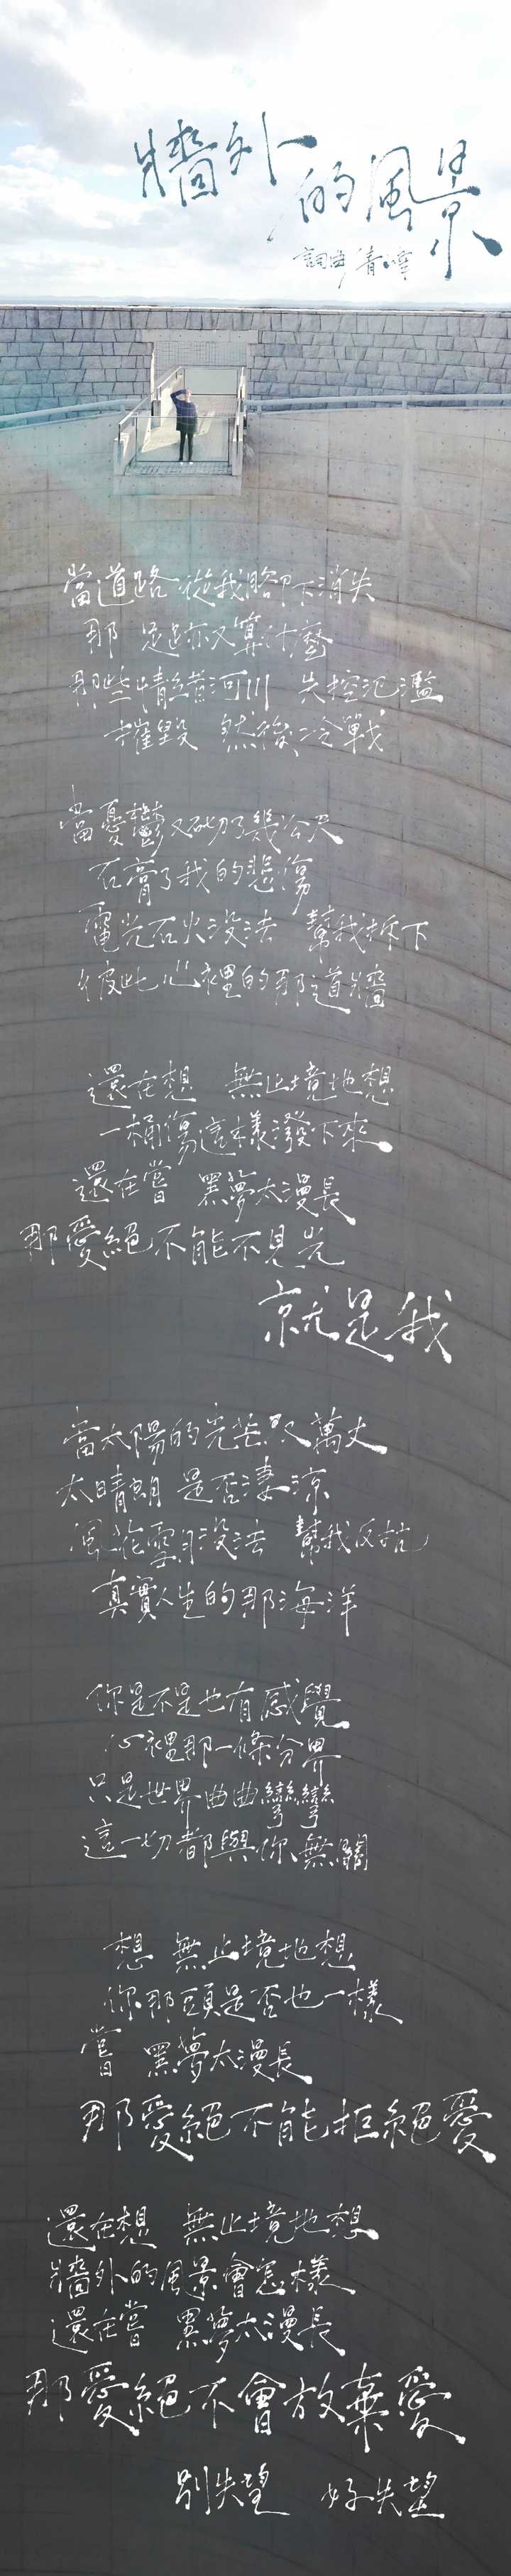 牆外的風景
詞� 青峰
當道路 從我腳下消失
那 足跡又算什麼
那些情緒河川 失控氾濫
摧毀 然後冷戰
當憂鬱又砌了幾公尺
石膏了我的悲傷
電光石火沒法 幫我拆下
彼此心裡的那道牆
還在想 無止境地想
一桶傷這樣潑下來
還在嘗 黑夢太漫長
那愛絕不能不見光
就是我
當太陽的光芒又萬丈
太晴朗 是否淒涼
風花雪月沒法 幫我反抗
真實人生的那海洋
你是不是也有感覺
心裡那一條分界
只是世界曲曲彎彎
這一切都與你無關
想 無止境地想
你那頭是否也一樣
嘗 黑夢太漫長
那愛絕不能拒絕愛
還在想 無止境地想
牆外的風景會怎樣
還在嘗 黑夢太漫長
那愛絕不會放棄愛
別失望 好失望